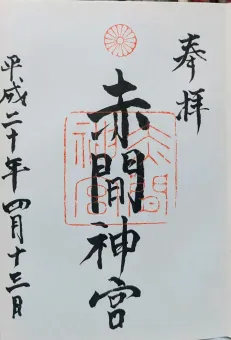 奉拝
赤間神宮
平成二十年四月十三日
赤間神宮